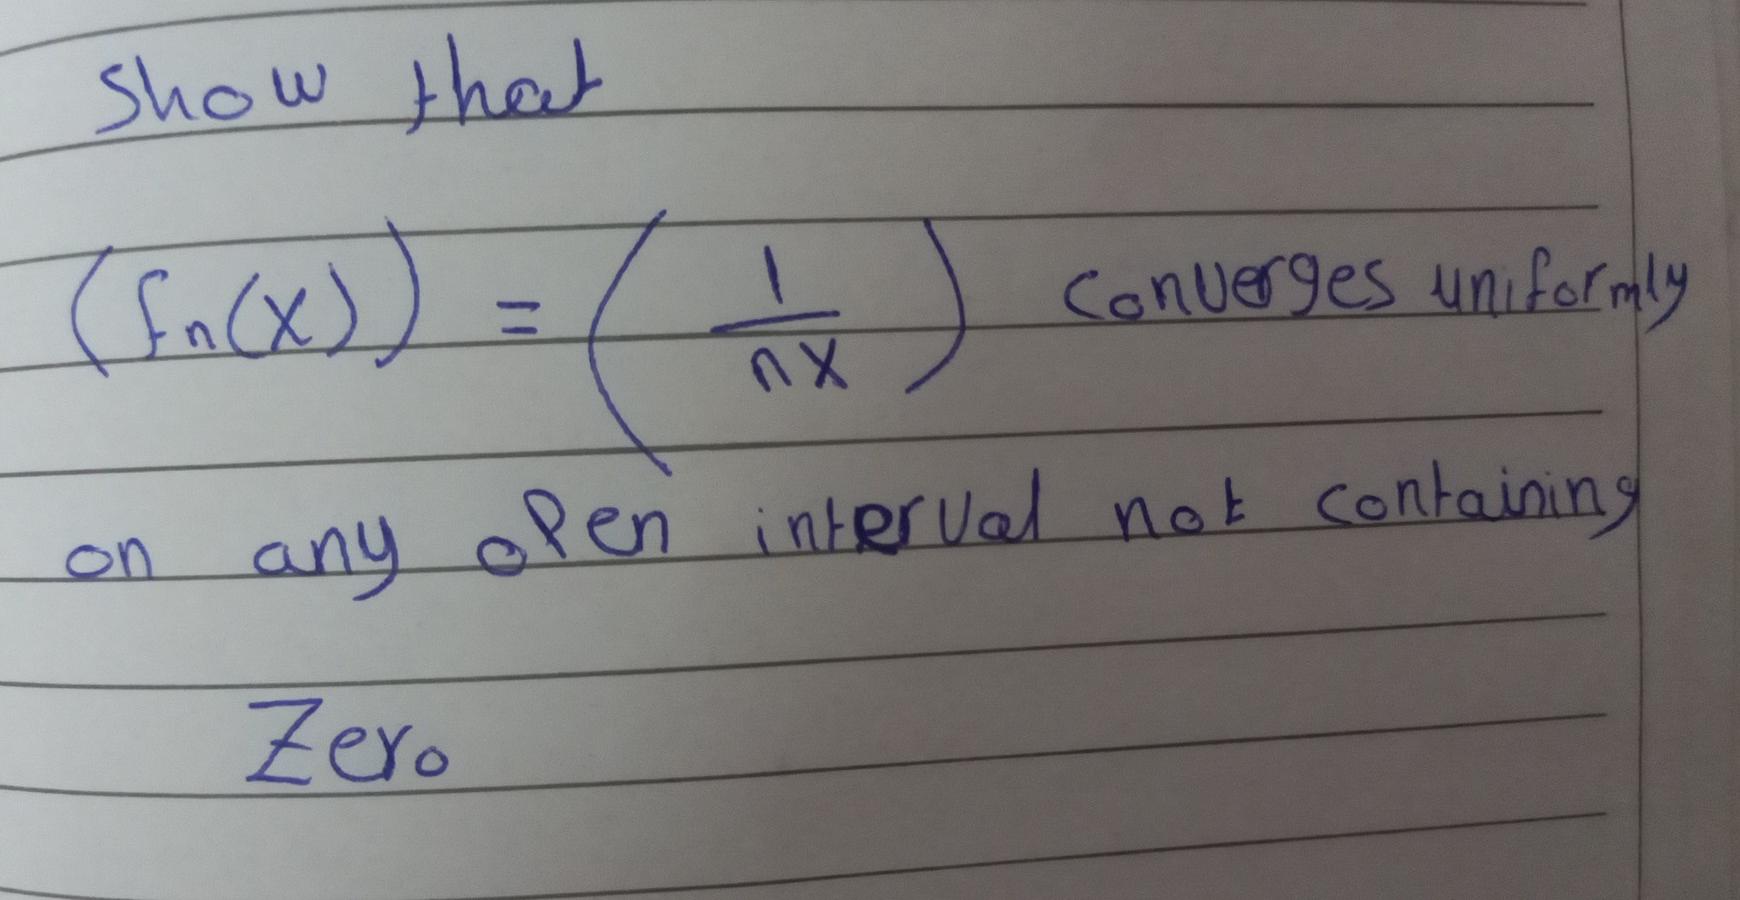 Show that
(fn(x)) = (1/nx) converges uniformly
on any open interval not containing
Zero